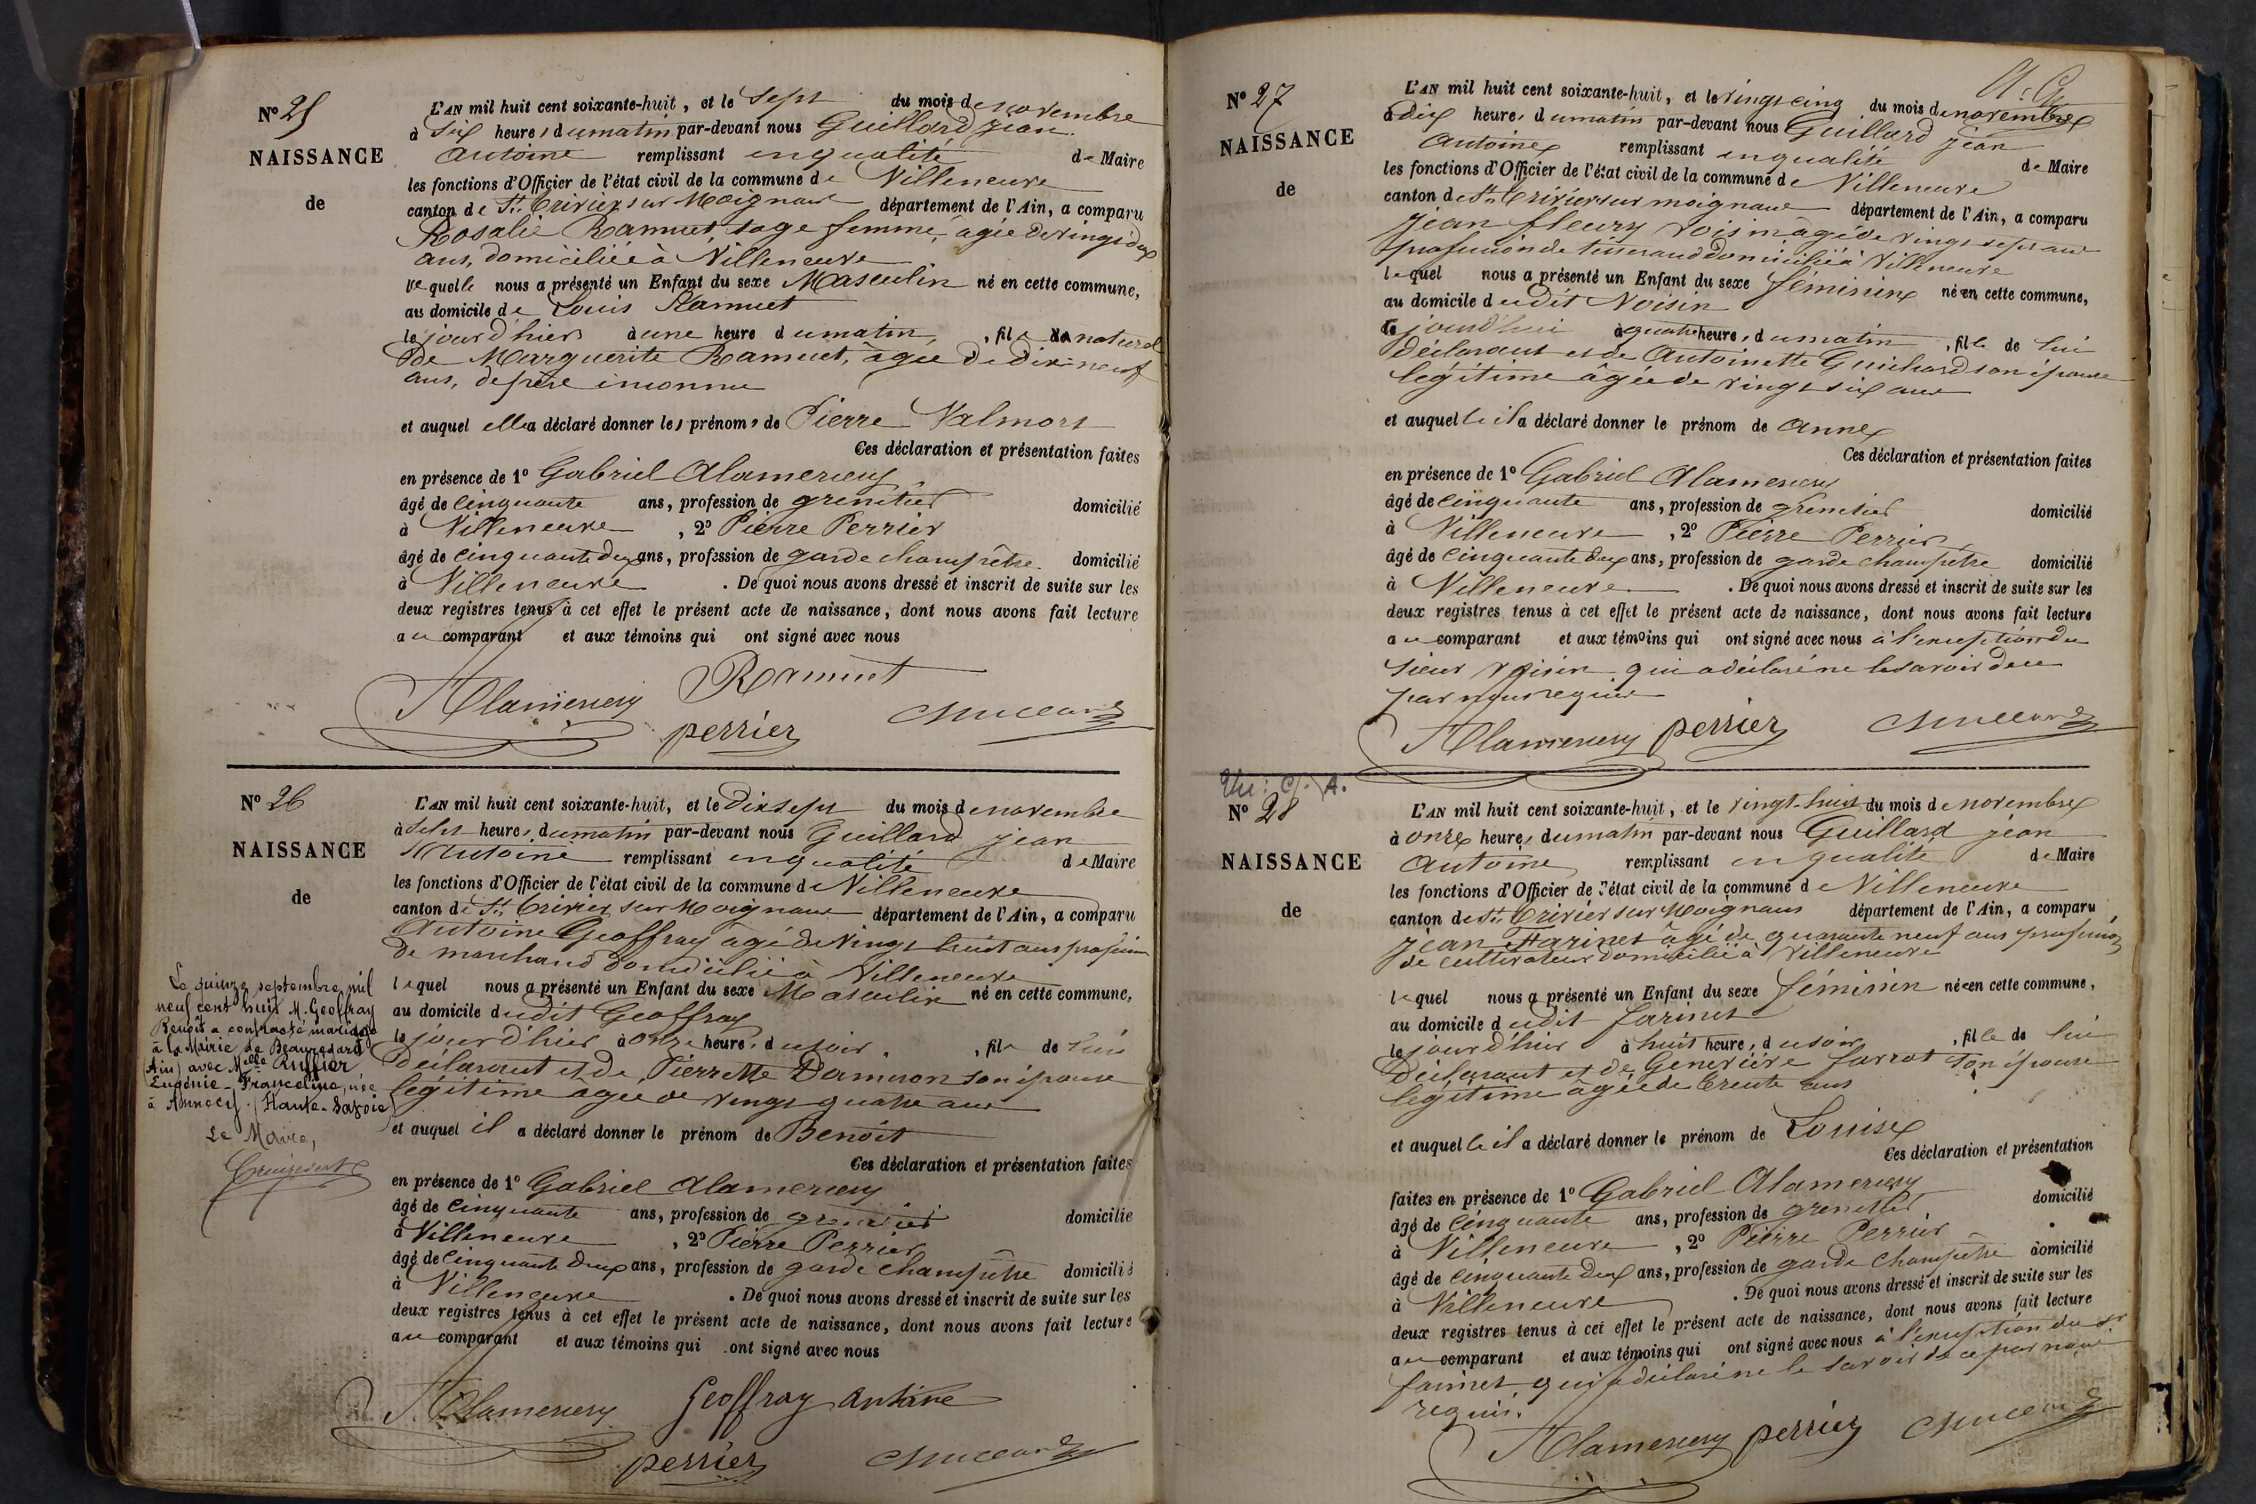 N° 25
NAISSANCE
de
L'AN mil huit cent soixante-huit, et le sept du mois de novembre
à six heures du matin par-devant nous Guillard jean
antoine remplissant en qualité de Maire
les fonctions d'Officier de l'état civil de la commune de Villeneuve
canton de St. Trivier sur Moignans département de l'Ain, a comparu
Rosalie Ramuet sage femme, âgée de vingt deux
ans, domiciliée à Villeneuve
laquelle nous a présenté un Enfant du sexe Masculin né en cette commune,
au domicile de Louis Ramuet
le jour d'hier à une heure du matin, fils naturel
De Marguerite Ramuet, agée de dix-neuf
ans, de père inconnu
et auquel elle a déclaré donner les prénoms de Pierre Valmort
Ces déclaration et présentation faites
en présence de 1° Gabriel Alamercery
âgé de cinquante ans, profession de grenetier domicilié
à Villeneuve, 2° Pierre Perrier
âgé de cinquante deux ans, profession de garde champêtre domicilié
à Villeneuve. De quoi nous avons dressé et inscrit de suite sur les
deux registres tenus à cet effet le présent acte de naissance, dont nous avons fait lecture
au comparant et aux témoins qui ont signé avec nous
Alamercery Ramuet
perrier Guillard
N° 26
NAISSANCE
de
L'AN mil huit cent soixante-huit, et le Dix sept du mois de novembre
à sept heures du matin par-devant nous Guillard jean
Antoine remplissant en qualité de Maire
les fonctions d'Officier de l'état civil de la commune de Villeneuve
canton de St. Trivier sur Moignans département de l'Ain, a comparu
Antoine Geoffray âgé de vingt huit ans profession
de marchand domicilié à Villeneuve
lequel nous a présenté un Enfant du sexe Masculin né en cette commune,
au domicile dudit Geoffray
le jour d'hier à onze heures du soir, fils de lui
Déclarant et de Pierrette Damiron son épouse
légitime agée de vingt quatre ans
et auquel il a déclaré donner le prénom de Benoît
Ces déclaration et présentation faites
en présence de 1° Gabriel Alamercery
âgé de cinquante ans, profession de grenetier domicilié
à Villeneuve, 2° Pierre Perrier
âgé de cinquante deux ans, profession de garde champêtre domicilié
à Villeneuve. De quoi nous avons dressé et inscrit de suite sur les
deux registres tenus à cet effet le présent acte de naissance, dont nous avons fait lecture
au comparant et aux témoins qui ont signé avec nous
Alamercery Geoffray antoine
perrier Guillard
Le quinze septembre mil
neuf cent huit M. Geoffray
Benoît a contracté mariage
à la Mairie de Beauregard
(Ain) avec Melle Ruffier
Eugénie-Franceline, née
à Annecy (Haute-Savoie)
Le Maire,
N° 27
NAISSANCE
de
L'AN mil huit cent soixante-huit, et le vingt cinq du mois de novembre
à dix heures du matin par-devant nous Guillard jean
Antoine remplissant en qualité de Maire
les fonctions d'Officier de l'état civil de la commune de Villeneuve
canton de St. Trivier sur moignans département de l'Ain, a comparu
jean fleury voisin âgé de vingt sept ans
profession de tisserand domicilié à Villeneuve
lequel nous a présenté un Enfant du sexe féminin née en cette commune,
au domicile dudit Voisin
le jourd'hui à quatre heures du matin, fille de lui
déclarant et de Antoinette Guichard son épouse
légitime âgée de vingt six ans
et auquelle il a déclaré donner le prénom de Anne
Ces déclaration et présentation faites
en présence de 1° Gabriel Alamercery
âgé de cinquante ans, profession de grenetier domicilié
à Villeneuve, 2° Pierre Perrier
âgé de cinquante deux ans, profession de garde champêtre domicilié
à Villeneuve. De quoi nous avons dressé et inscrit de suite sur les
deux registres tenus à cet effet le présent acte de naissance, dont nous avons fait lecture
au comparant et aux témoins qui ont signé avec nous à l'exception du
sieur voisin qui a déclaré ne le savoir de ce
par nous requis
Alamercery perrier Guillard
N° 28
NAISSANCE
de
L'AN mil huit cent soixante-huit, et le vingt-huit du mois de novembre
à onze heures du matin par-devant nous Guillard jean
Antoine remplissant en qualité de Maire
les fonctions d'Officier de l'état civil de la commune de Villeneuve
canton de St. Trivier sur Moignans département de l'Ain, a comparu
jean Farinet âgé de quarante neuf ans profession
de cultivateur domicilié à Villeneuve
lequel nous a présenté un Enfant du sexe féminin née en cette commune,
au domicile dudit farinet
le jour d'hier à huit heures du soir, fille de lui
Déclarant et de Geneviève farrot son épouse
légitime âgée de trente ans
et auquelle il a déclaré donner le prénom de Louise
Ces déclaration et présentation
faites en présence de 1° Gabriel Alamercery
âgé de cinquante ans, profession de grenetier domicilié
à Villeneuve, 2° Pierre Perrier
âgé de cinquante deux ans, profession de garde champêtre domicilié
à Villeneuve. De quoi nous avons dressé et inscrit de suite sur les
deux registres tenus à cet effet le présent acte de naissance, dont nous avons fait lecture
au comparant et aux témoins qui ont signé avec nous à l'exception du sr
farinet qui a déclaré ne le savoir de ce par nous
requis.
Alamercery perrier Guillard